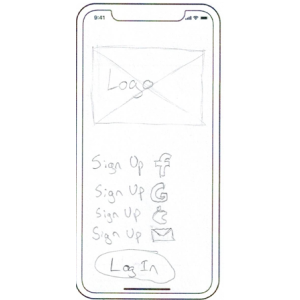 9:41
Logo
Sign Up
Sign Up
Sign Up
Sign Up
Log In